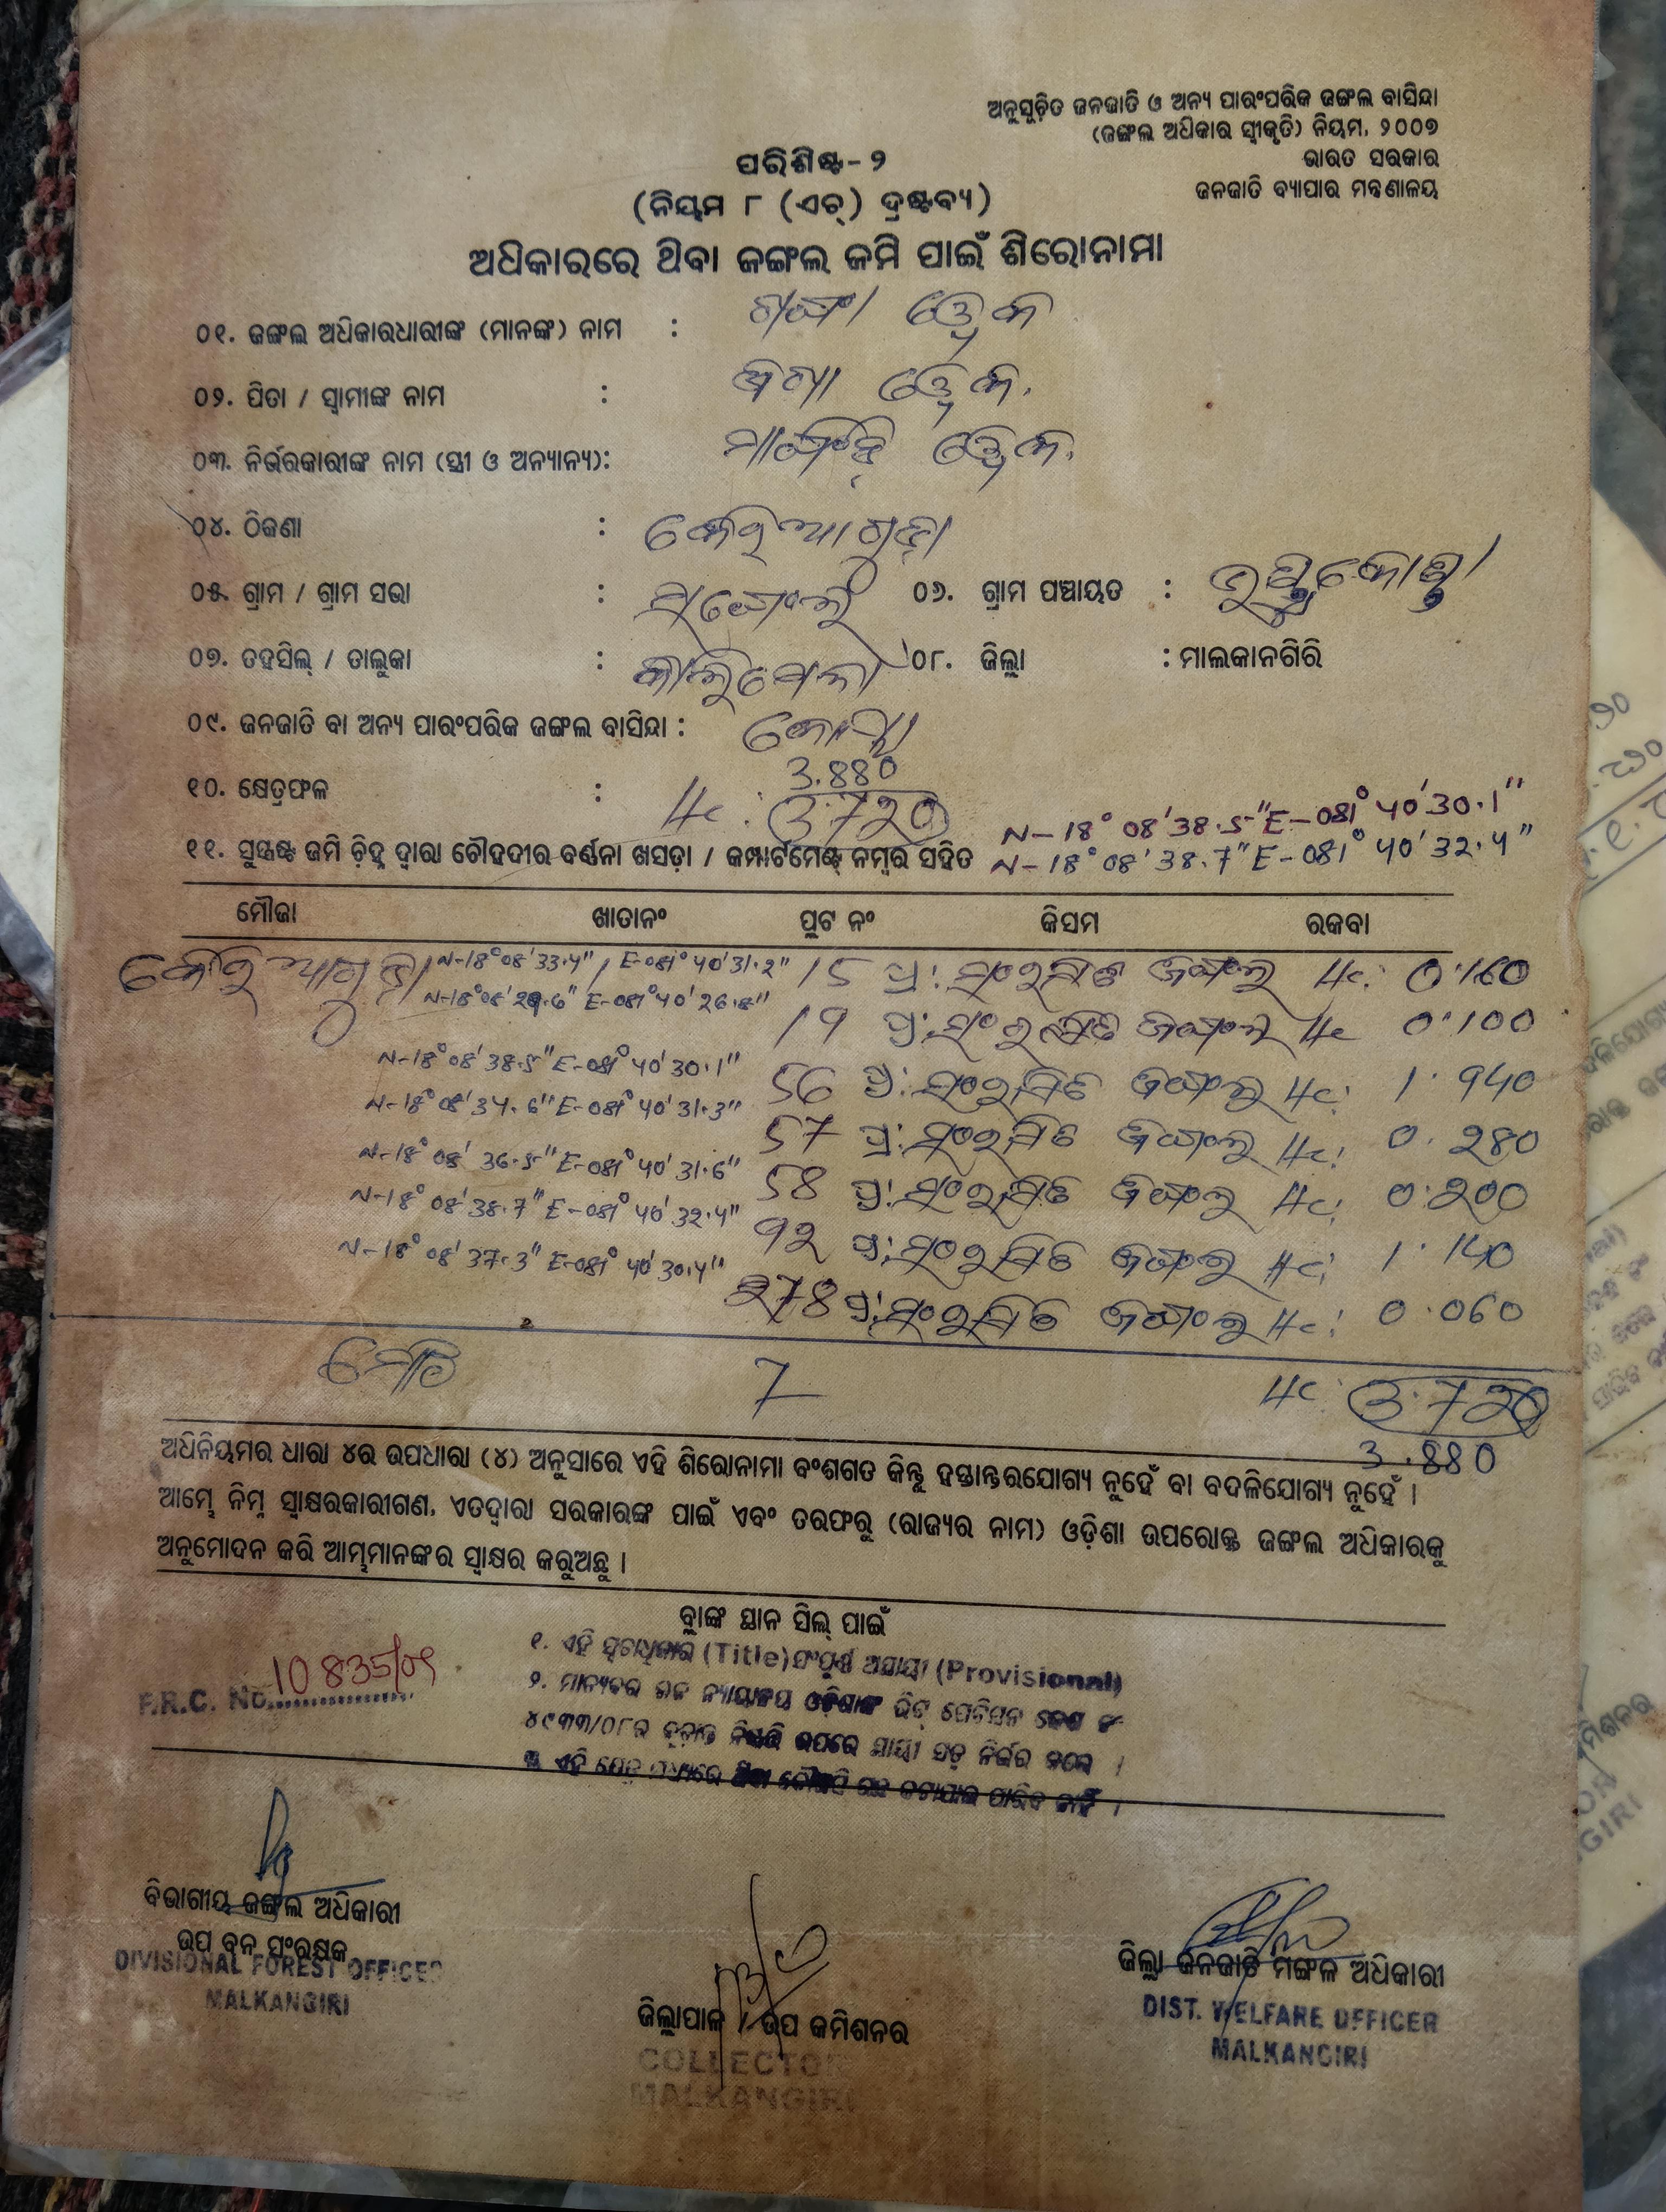 ଅନୁସୂଚିତ ଜନଜାତି ଓ ଅନ୍ୟ ପାରଂପରିକ ଜଙ୍ଗଲ ବାସିନ୍ଦା
(ଜଙ୍ଗଲ ଅଧିକାର ସ୍ୱୀକୃତି) ନିୟମ, ୨୦୦୭
ଭାରତ ସରକାର
ଜନଜାତି ବ୍ୟାପାର ମନ୍ତ୍ରଣାଳୟ
ପରିଶିଷ୍ଟ-୨
(ନିୟମ ୮ (ଏଚ୍) ଦ୍ରଷ୍ଟବ୍ୟ)
ଅଧିକାରରେ ଥିବା ଜଙ୍ଗଲ ଜମି ପାଇଁ ଶିରୋନାମା
୦୧. ଜଙ୍ଗଲ ଅଧିକାରଧାରୀଙ୍କ (ମାନଙ୍କ) ନାମ :
୦୨. ପିତା / ସ୍ୱାମୀଙ୍କ ନାମ :
୦୩. ନିର୍ଭରକାରୀଙ୍କ ନାମ (ସ୍ତ୍ରୀ ଓ ଅନ୍ୟାନ୍ୟ):
୦୪. ଠିକଣା : କେରିଆଗୁଡ଼ା
୦୫. ଗ୍ରାମ / ଗ୍ରାମ ସଭା : ୦୬. ଗ୍ରାମ ପଞ୍ଚାୟତ :
୦୭. ତହସିଲ୍ / ତାଲୁକା : କାଲିମେଳା ୦୮. ଜିଲ୍ଲା : ମାଲକାନଗିରି
୦୯. ଜନଜାତି ବା ଅନ୍ୟ ପାରଂପରିକ ଜଙ୍ଗଲ ବାସିନ୍ଦା : କୋୟା
3.880
୧୦. କ୍ଷେତ୍ରଫଳ : Hc. 3.720
N-18° 08' 38.5" E-081° 40' 30.1"
୧୧. ସୁସ୍ପଷ୍ଟ ଜମି ଚିହ୍ନ ଦ୍ୱାରା ଚୌହଦୀର ବର୍ଣ୍ଣନା ଖସଡ଼ା / କମ୍ପାର୍ଟମେଣ୍ଟ୍ ନମ୍ବର ସହିତ N-18° 08' 38.7" E-081° 40' 32.4"
ମୌଜା ଖାତାନଂ ପ୍ଲଟ ନଂ କିସମ ରକବା
କେରିଆଗୁଡ଼ା N-18° 08' 33.4" E-081° 40' 31.2" 15 ପ୍ର: ସଂରକ୍ଷିତ ଜଙ୍ଗଲ Hc. 0.160
N-18° 08' 29.6" E-081° 40' 26.8" 19 ପ୍ର: ସଂରକ୍ଷିତ ଜଙ୍ଗଲ Hc 0.100
N-18° 08' 38.5" E-081° 40' 30.1" 56 ପ୍ର: ସଂରକ୍ଷିତ ଜଙ୍ଗଲ Hc. 1.940
N-18° 08' 34.6" E-081° 40' 31.3" 57 ପ୍ର: ସଂରକ୍ଷିତ ଜଙ୍ଗଲ Hc. 0.280
N-18° 08' 36.5" E-081° 40' 31.6" 58 ପ୍ର: ସଂରକ୍ଷିତ ଜଙ୍ଗଲ Hc. 0.200
N-18° 08' 38.7" E-081° 40' 32.4" 92 ପ୍ର: ସଂରକ୍ଷିତ ଜଙ୍ଗଲ Hc. 1.140
N-18° 08' 37.3" E-081° 40' 30.4" 278 ପ୍ର: ସଂରକ୍ଷିତ ଜଙ୍ଗଲ Hc. 0.060
ମୋଟ 7 Hc. 3.720
3.880
ଅଧିନିୟମର ଧାରା ୪ର ଉପଧାରା (୪) ଅନୁସାରେ ଏହି ଶିରୋନାମା ବଂଶଗତ କିନ୍ତୁ ହସ୍ତାନ୍ତରଯୋଗ୍ୟ ନୁହେଁ ବା ବଦଳିଯୋଗ୍ୟ ନୁହେଁ ।
ଆମ୍ଭେ ନିମ୍ନ ସ୍ୱାକ୍ଷରକାରୀଗଣ, ଏତଦ୍ୱାରା ସରକାରଙ୍କ ପାଇଁ ଏବଂ ତରଫରୁ (ରାଜ୍ୟର ନାମ) ଓଡ଼ିଶା ଉପରୋକ୍ତ ଜଙ୍ଗଲ ଅଧିକାରକୁ
ଅନୁମୋଦନ କରି ଆମ୍ଭମାନଙ୍କର ସ୍ୱାକ୍ଷର କରୁଅଛୁ ।
ବ୍ଲାଙ୍କ ସ୍ଥାନ ସିଲ୍ ପାଇଁ
୧. ଏହି ସ୍ୱତ୍ୱାଧିକାର (Title) ସଂପୂର୍ଣ୍ଣ ଅସ୍ଥାୟୀ (Provisional)
F.R.C. No. 10835/09
୨. ମାନ୍ୟବର ଉଚ୍ଚ ନ୍ୟାୟାଳୟ ଓଡ଼ିଶାଙ୍କ ରିଟ୍ ପେଟିସନ କେଶ ନଂ
୪୯୩୩/୦୮ର ଚୂଡ଼ାନ୍ତ ନିଷ୍ପତ୍ତି ଉପରେ ସ୍ଥାୟୀ ସତ୍ୱ ନିର୍ଭର କରେ ।
ବିଭାଗୀୟ ଜଙ୍ଗଲ ଅଧିକାରୀ
ଉପ ବନ ସଂରକ୍ଷକ
DIVISIONAL FOREST OFFICER
MALKANGIRI
ଜିଲ୍ଲାପାଳ / ଉପ କମିଶନର
COLLECTOR
MALKANGIRI
ଜିଲ୍ଲା ଜନଜାତି ମଙ୍ଗଳ ଅଧିକାରୀ
DIST. WELFARE OFFICER
MALKANGIRI